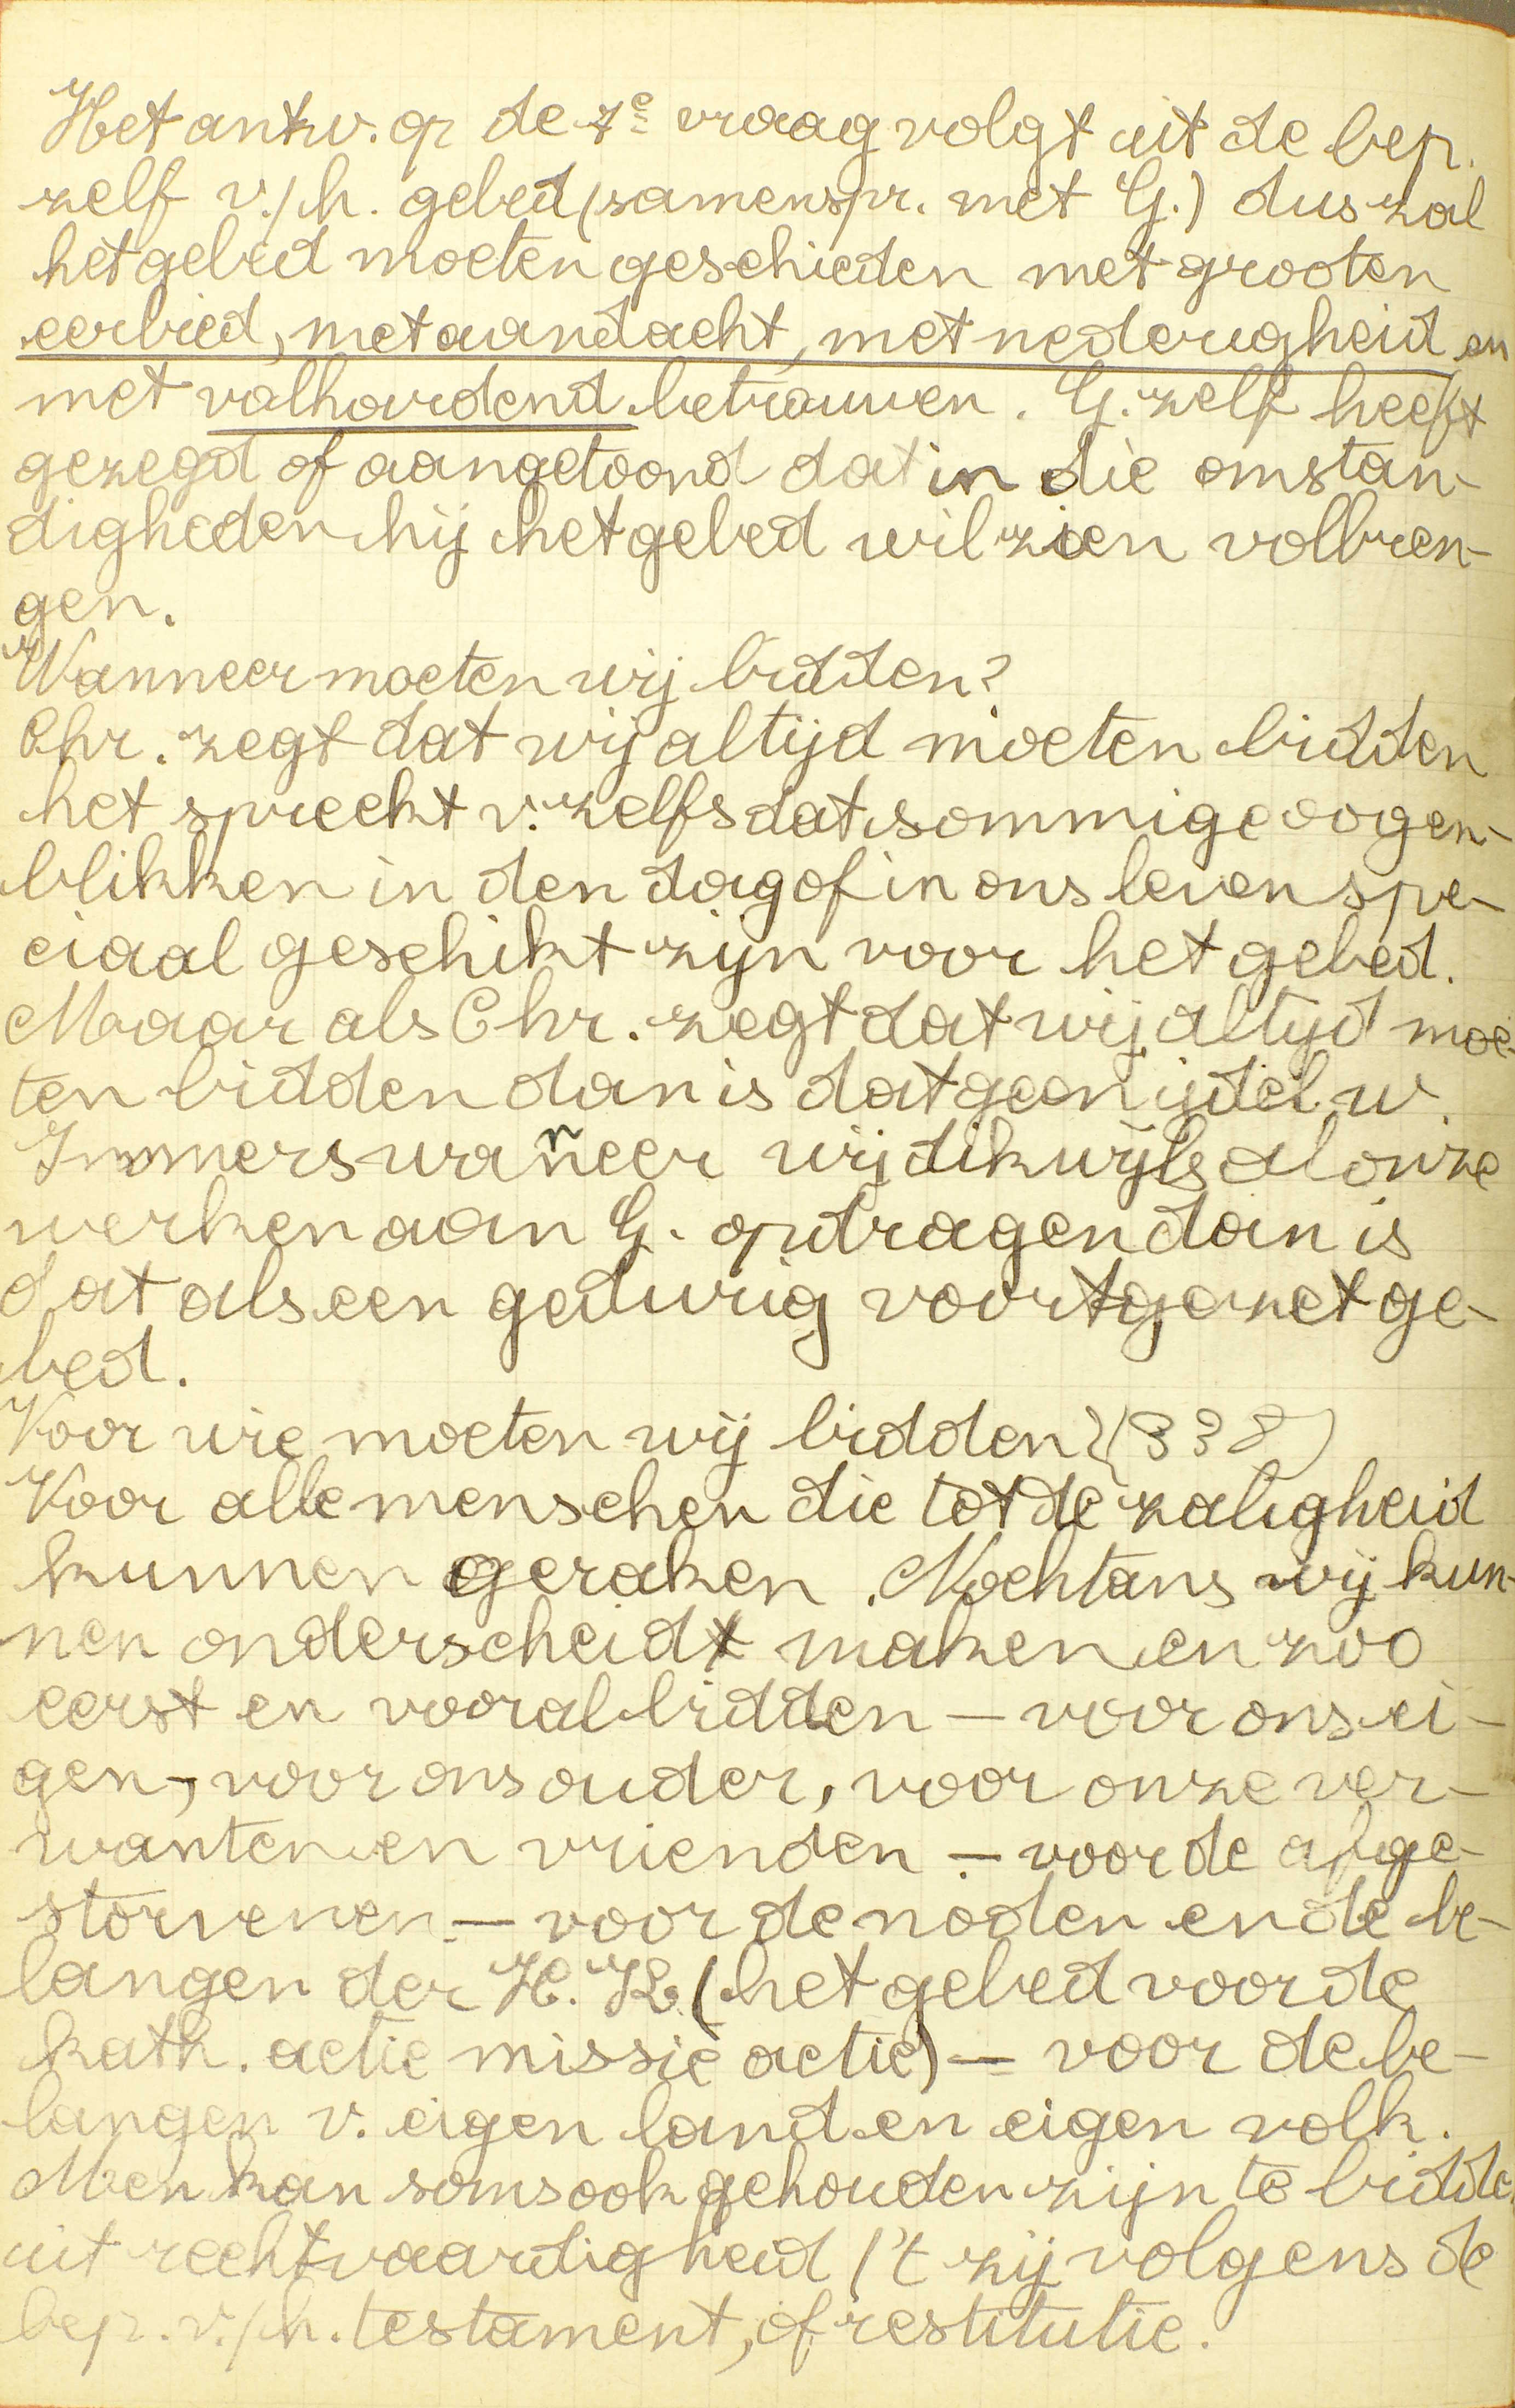 Het antw. op de 7e vraag volgt uit de bep.
zelf v./h. gebed (samenspr. met G.) dus zal
het gebed moeten geschieden met grooten
eerbied, met aandacht, met nederigheid en
met volhoudend betrouwen. G. zelf heeft
gezegd of aangetoond dat in die omstan-
digheden hij het gebed wil zien volbren-
gen.
Wanneer moeten wij bidden?
Chr. zegt dat wij altijd moeten bidden
het spreekt v. zelfs dat sommige oogen-
blikken in den dag of in ons leven spe-
ciaal geschikt zijn voor het gebed.
Maar als Chr. zegt dat wij altijd moe-
ten bidden dan is dat geen ijdel w.
Immers wanneer wij dikwijls al onze
werken aan G. opdragen dan is
dat als een gedurig voortgezet ge-
bed.
Voor wie moeten wij bidden? (338)
Voor alle menschen die tot de zaligheid
kunnen geraken. Nochtans wij kun-
nen onderscheid maken en zoo
eerst en vooral bidden – voor ons ei-
gen –, voor ons ouder, voor onze ver-
wanten en vrienden – voor de afge-
storvenen – voor de noden en de be-
langen der H. K. (het gebed voor de
kath. actie missie actie) – voor de be-
langen v. eigen land en eigen volk.
Men kan soms ook gehouden zijn te bidden
uit rechtvaardigheid ('t zij volgens de
bep. v./h. testament, of restitutie.